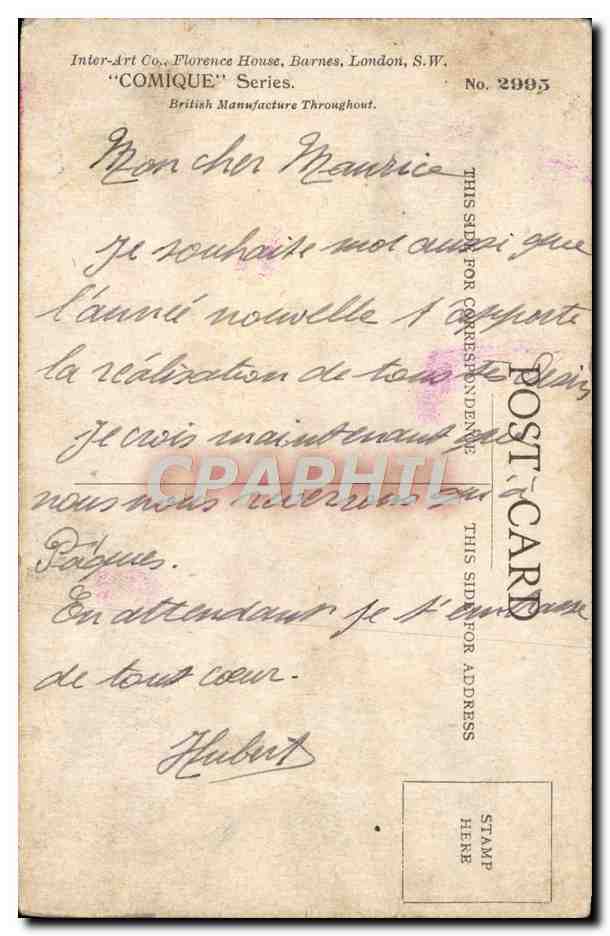 Inter-Art Co., Florence House, Barnes, London, S.W.
"COMIQUE" Series.
No. 2995
British Manufacture Throughout.
Mon cher Maurice
Je souhaite moi aussi que
l'année nouvelle t'apporte
la réalisation de tous tes désirs
Je crois maintenant que
nous nous reverrons qu'à
Pâques.
En attendant je t'embrasse
de tout coeur.
Hubert
THIS SIDE FOR CORRESPONDENCE
THIS SIDE FOR ADDRESS
POST-CARD
STAMP
HERE
CPAPHIL